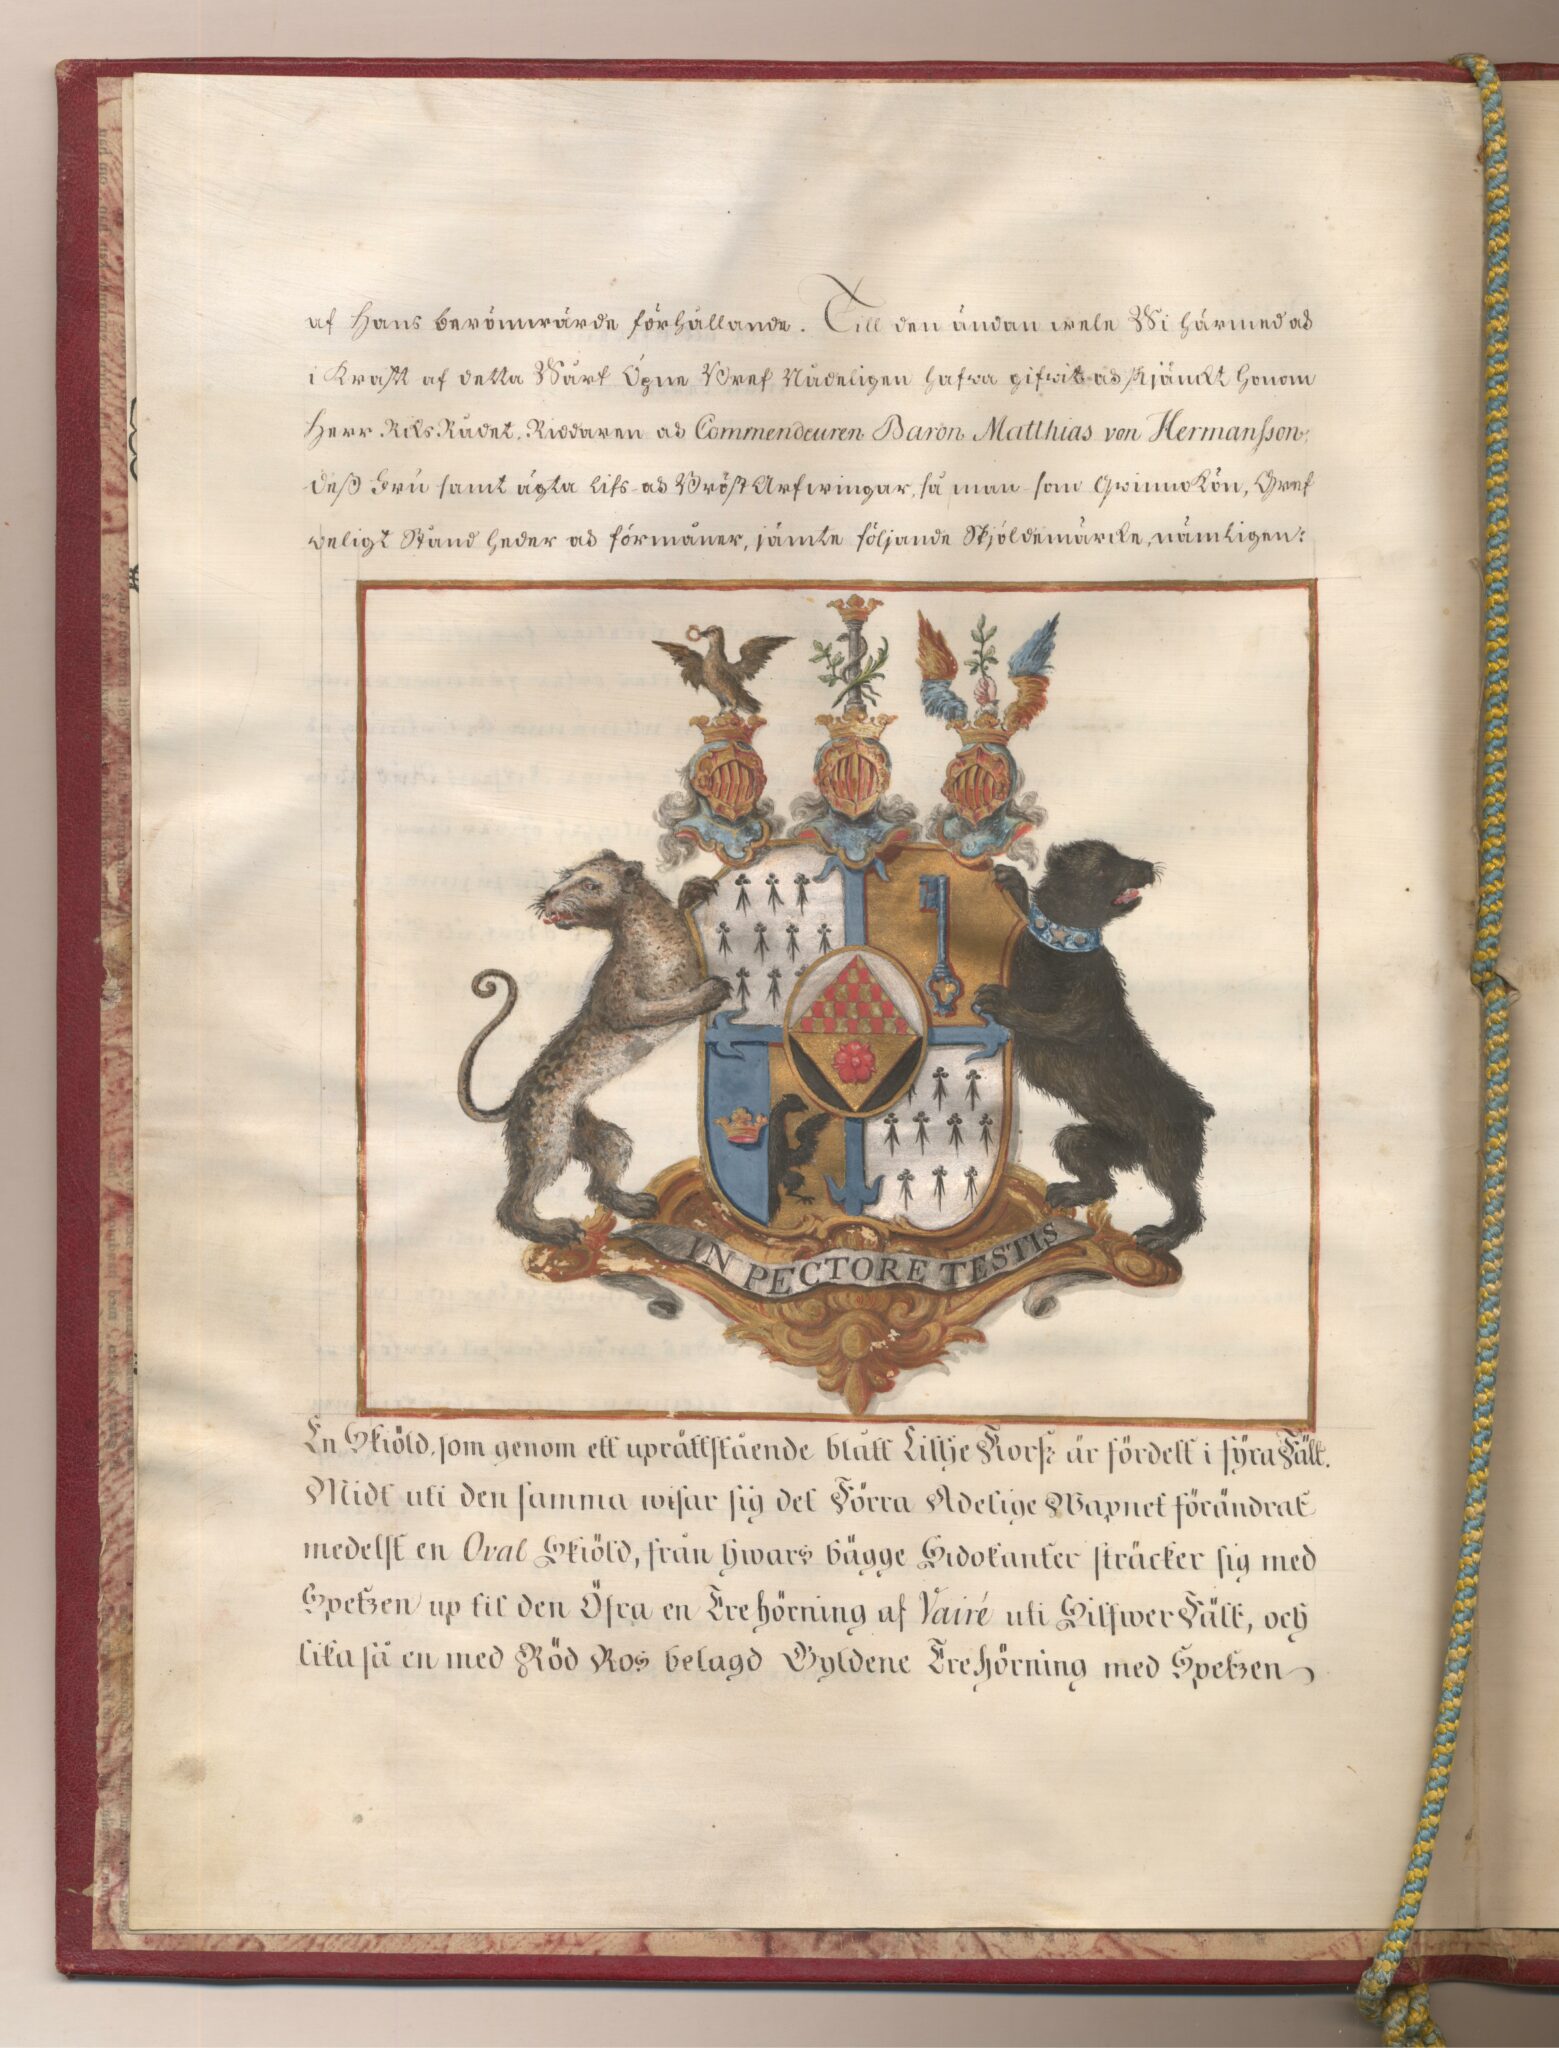 af Hans berömwärde förhållande. Till den ändan wele Wi härmed ad
i Krafft af detta Wårt Öpne Bref Nådeligen hafwa gifwit ad skjänckt honom
Herr RiksRådet, Riddaren ad Commendeuren Baron Matthias von Hermansson,
deß Fru samt ägta lifs ad Bröst Arfwingar, så man som QwinnoKön, Gref
weligt Stånd heder ad förmåner, jämte följande Skjöldemärcke, nämligen:
IN PECTORE TESTIS
En Skiöld, som genom ett uprättstående blått Lillje Korß är fördelt i fyra Fält.
Midt uti den samma wisar sig det Förra Adelige Wapnet förändrat
medelst en Oval Skiöld, från hwars bägge Sidokanter sträcker sig med
Spetzen up til den Öfra en Trehörning af Vairé uti SilfwerFält, och
lika så en med Röd Ros belagd Gyldene Trehörning med Spetzen